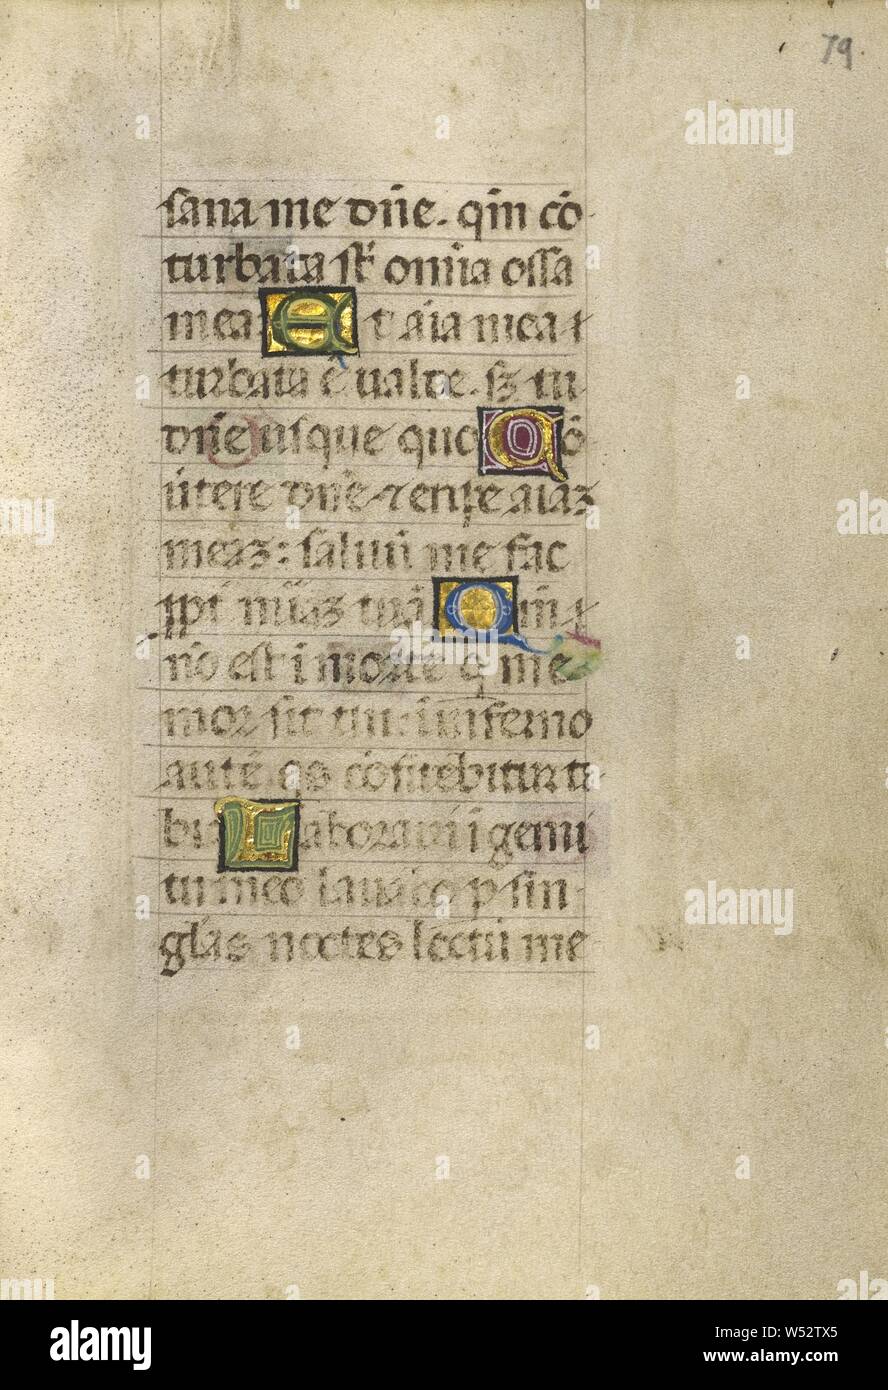 79.
sana me dñe. qm̃ cõ
turbata st̃ omīa ossa
mea: Et aīa mea t
turbata ẽ valde. sꝫ tu
dñe usque quo Cõ
ũtere dñe ⁊ eripe aīaꝫ
meaꝫ: saluũ me fac
ppt̃ mĩaꝫ tuã Qm̃
nõ est ĩ morte q̃ me
mor sit tui: ĩ inferno
autẽ. qs cõfitebitur ti
bi: Laboraui ĩ gemi
tu meo lauabo p sin
glas noctes lectũ me
alamy
Image ID: W52TX5
www.alamy.com